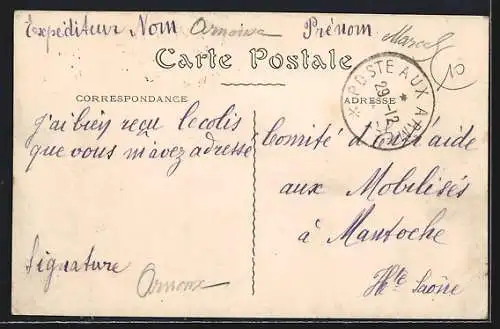 Expéditeur Nom Prénom Marcel
Carte Postale
CORRESPONDANCE
ADRESSE
POSTE AUX ARM
29-12
10
J'ai bien reçu le colis
que vous m'avez adressé
Comité d'entr'aide
aux Mobilisés
à Mantoche
Hte Saône
Signature